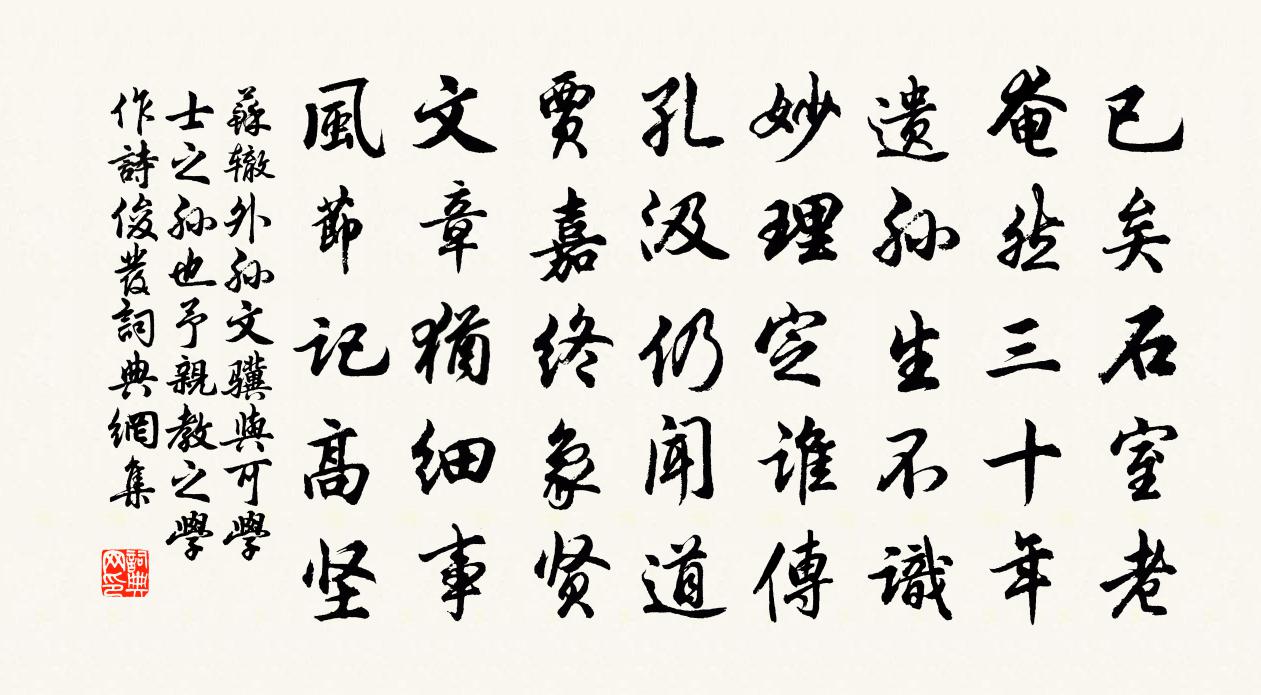 已矣石室老
奄然三十年
遗孙生不識
妙理定誰傳
孔汲仍闻道
賈嘉终象贤
文章猶细事
風節记高坚
蘇辙外孙文骥與可學
士之孙也予親教之學
作詩俊發詞典網集
詞典
网印